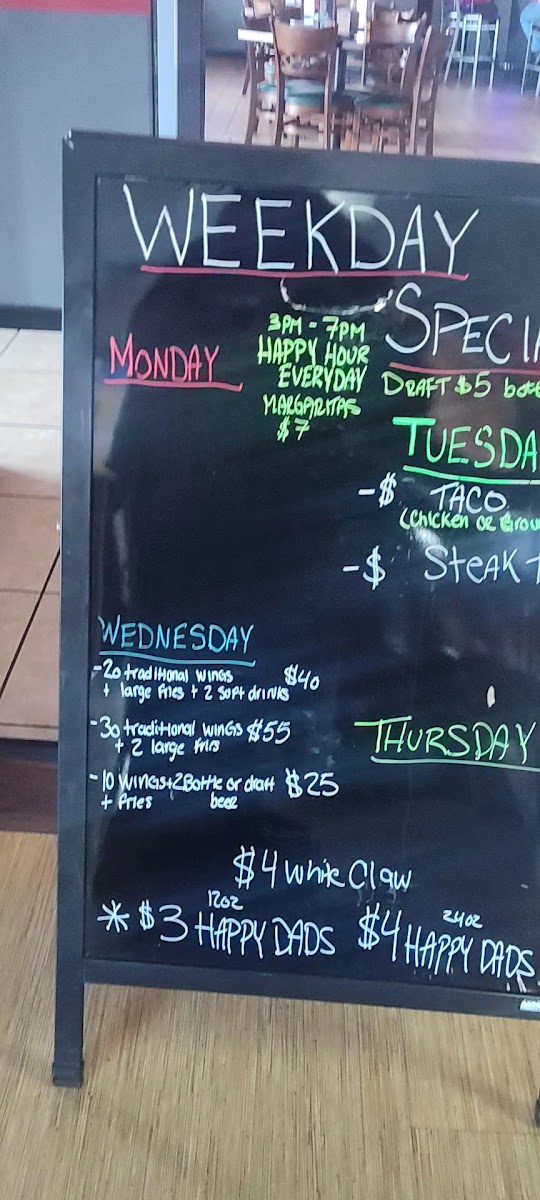 WEEKDAY
SPECI
MONDAY
3PM - 7PM
HAPPY HOUR
EVERYDAY
MARGARITAS
$7
DRAFT $5 bott
TUESDA
-$ TACO
(Chicken or Grou
-$ STEAK T
WEDNESDAY
-20 traditional wings $40
+ large fries + 2 soft drinks
-30 traditional wings $55
+ 2 large fries
-10 wings+2Bottle or draft $25
+ fries beer
THURSDAY
$4 White Claw
12oz
*$3 HAPPY DADS
24oz
$4 HAPPY DADS